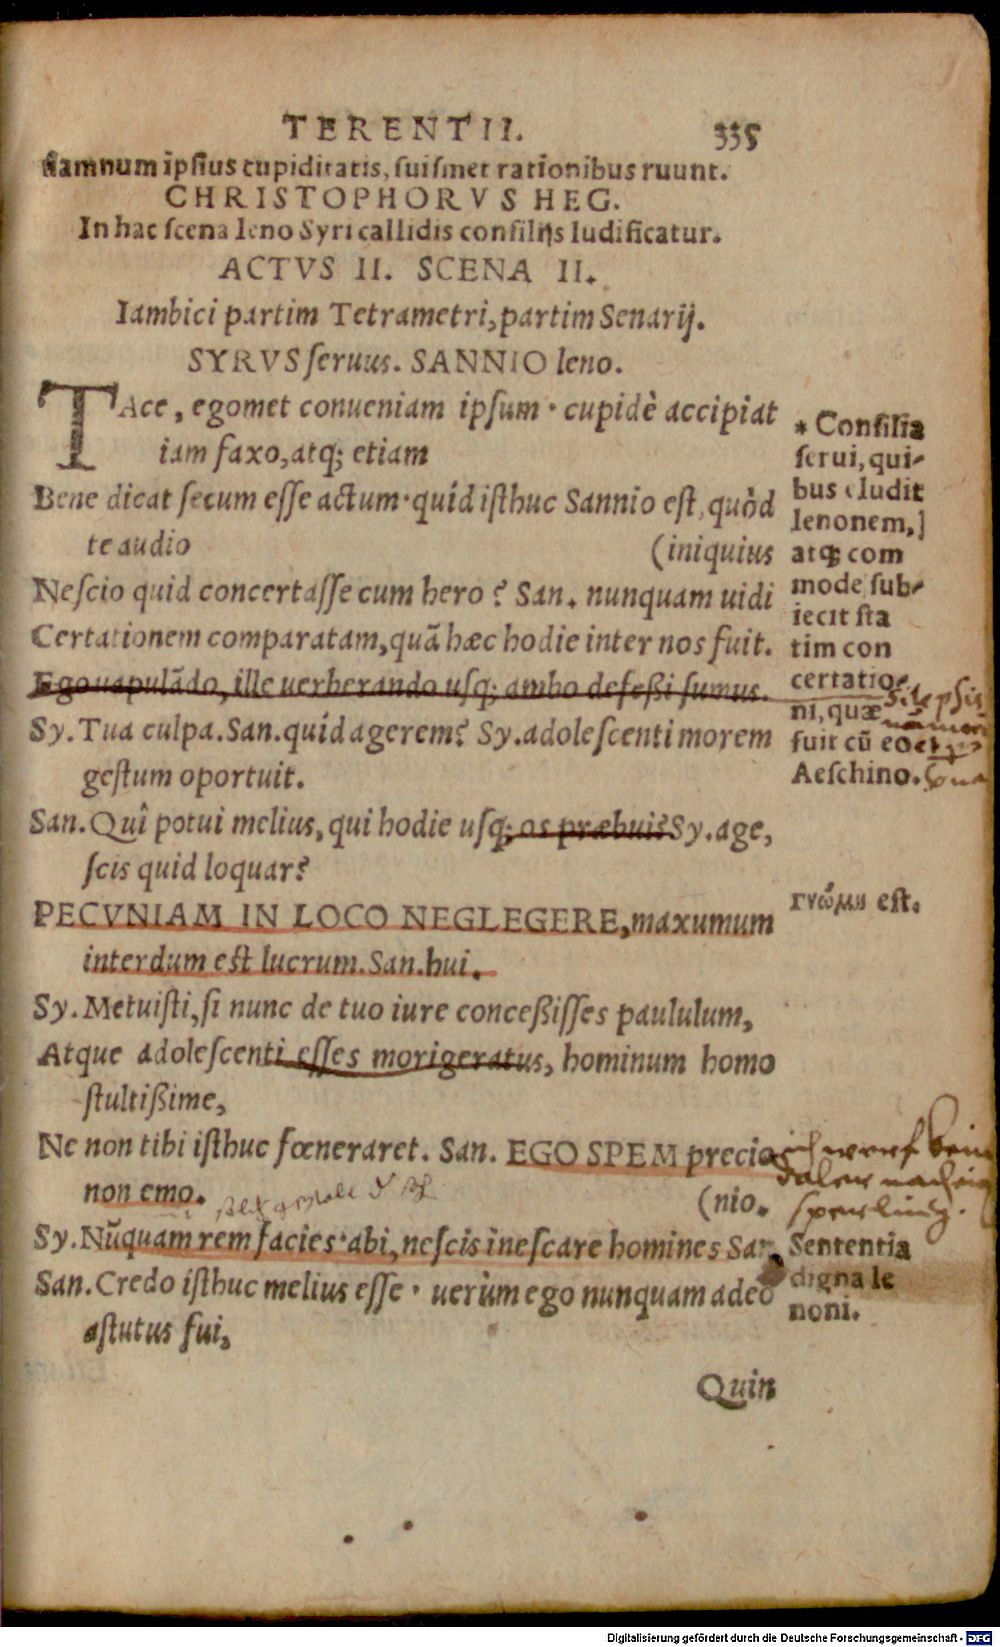 TERENTII. 335
damnum ipsius cupiditatis, suismet rationibus ruunt.
CHRISTOPHORVS HEG.
In hac scena leno Syri callidis consilijs ludificatur.
ACTVS II. SCENA II.
Iambici partim Tetrametri, partim Senarij.
SYRVS seruus. SANNIO leno.
TAce, egomet conueniam ipsum · cupidè accipiat
iam faxo, atq; etiam
Bene dicat secum esse actum · quid isthuc Sannio est, quòd
te audio (iniquius
Nescio quid concertasse cum hero? San. nunquam uidi
Certationem comparatam, quã hæc hodie inter nos fuit.
Ego uapulãdo, ille uerberando usq; ambo defeßi sumus.
Sy. Tua culpa. San. quid agerem? Sy. adolescenti morem
gestum oportuit.
San. Quî potui melius, qui hodie usq; os præbui? Sy. age,
scis quid loquar?
PECVNIAM IN LOCO NEGLEGERE, maxumum
interdum est lucrum. San. hui.
Sy. Metuisti, si nunc de tuo iure conceßisses paululum,
Atque adolescenti esses morigeratus, hominum homo
stultißime,
Ne non tibi isthuc fœneraret. San. EGO SPEM precio
non emo. (nio.
Sy. Nũquam rem facies · abi, nescis inescare homines San
San. Credo isthuc melius esse · uerùm ego nunquam adeo
astutus fui,
Quin
* Consilia
serui, qui-
bus eludit
lenonem,]
atq; com
mode sub-
iecit sta
tim con
certatio-
ni, quæ
fuit cũ eo
Aeschino.
γνώμη est.
ich werf kein
daler nach ein
sperling.
Sententia
digna le
noni.
Digitalisierung gefördert durch die Deutsche Forschungsgemeinschaft - DFG